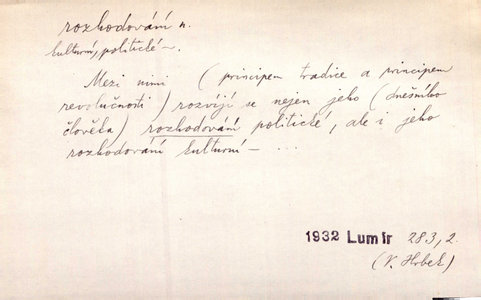 rozhodování n.
kulturní, politické –.
Mezi nimi (principem tradice a principem
revolučnosti) rozvíjí se nejen jeho (dnešního
člověka) rozhodování politické, ale i jeho
rozhodování kulturní – ...
1932 Lumír 283,2.
(V. Hrbek)